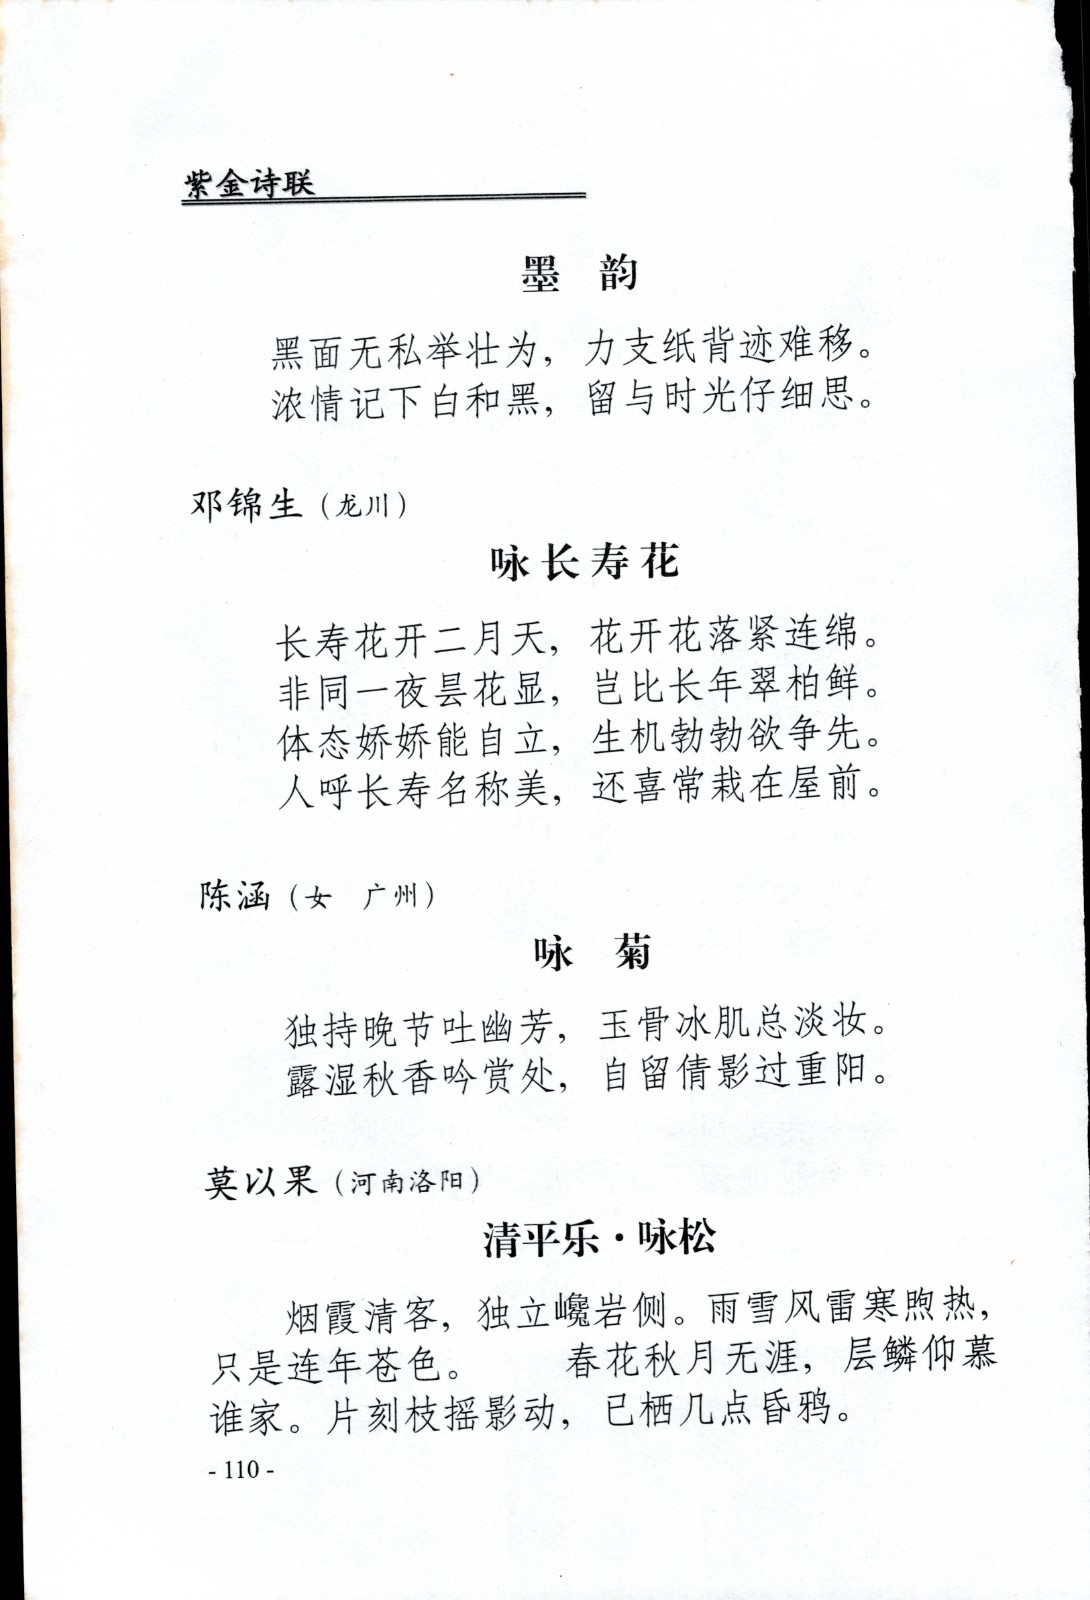 紫金诗联
墨　韵
黑面无私举壮为，力支纸背迹难移。
浓情记下白和黑，留与时光仔细思。
邓锦生（龙川）
咏长寿花
长寿花开二月天，花开花落紧连绵。
非同一夜昙花显，岂比长年翠柏鲜。
体态娇娇能自立，生机勃勃欲争先。
人呼长寿名称美，还喜常栽在屋前。
陈涵（女　广州）
咏　菊
独持晚节吐幽芳，玉骨冰肌总淡妆。
露湿秋香吟赏处，自留倩影过重阳。
莫以果（河南洛阳）
清平乐·咏松
烟霞清客，独立巉岩侧。雨雪风雷寒煦热，
只是连年苍色。　　春花秋月无涯，层鳞仰慕
谁家。片刻枝摇影动，已栖几点昏鸦。
- 110 -